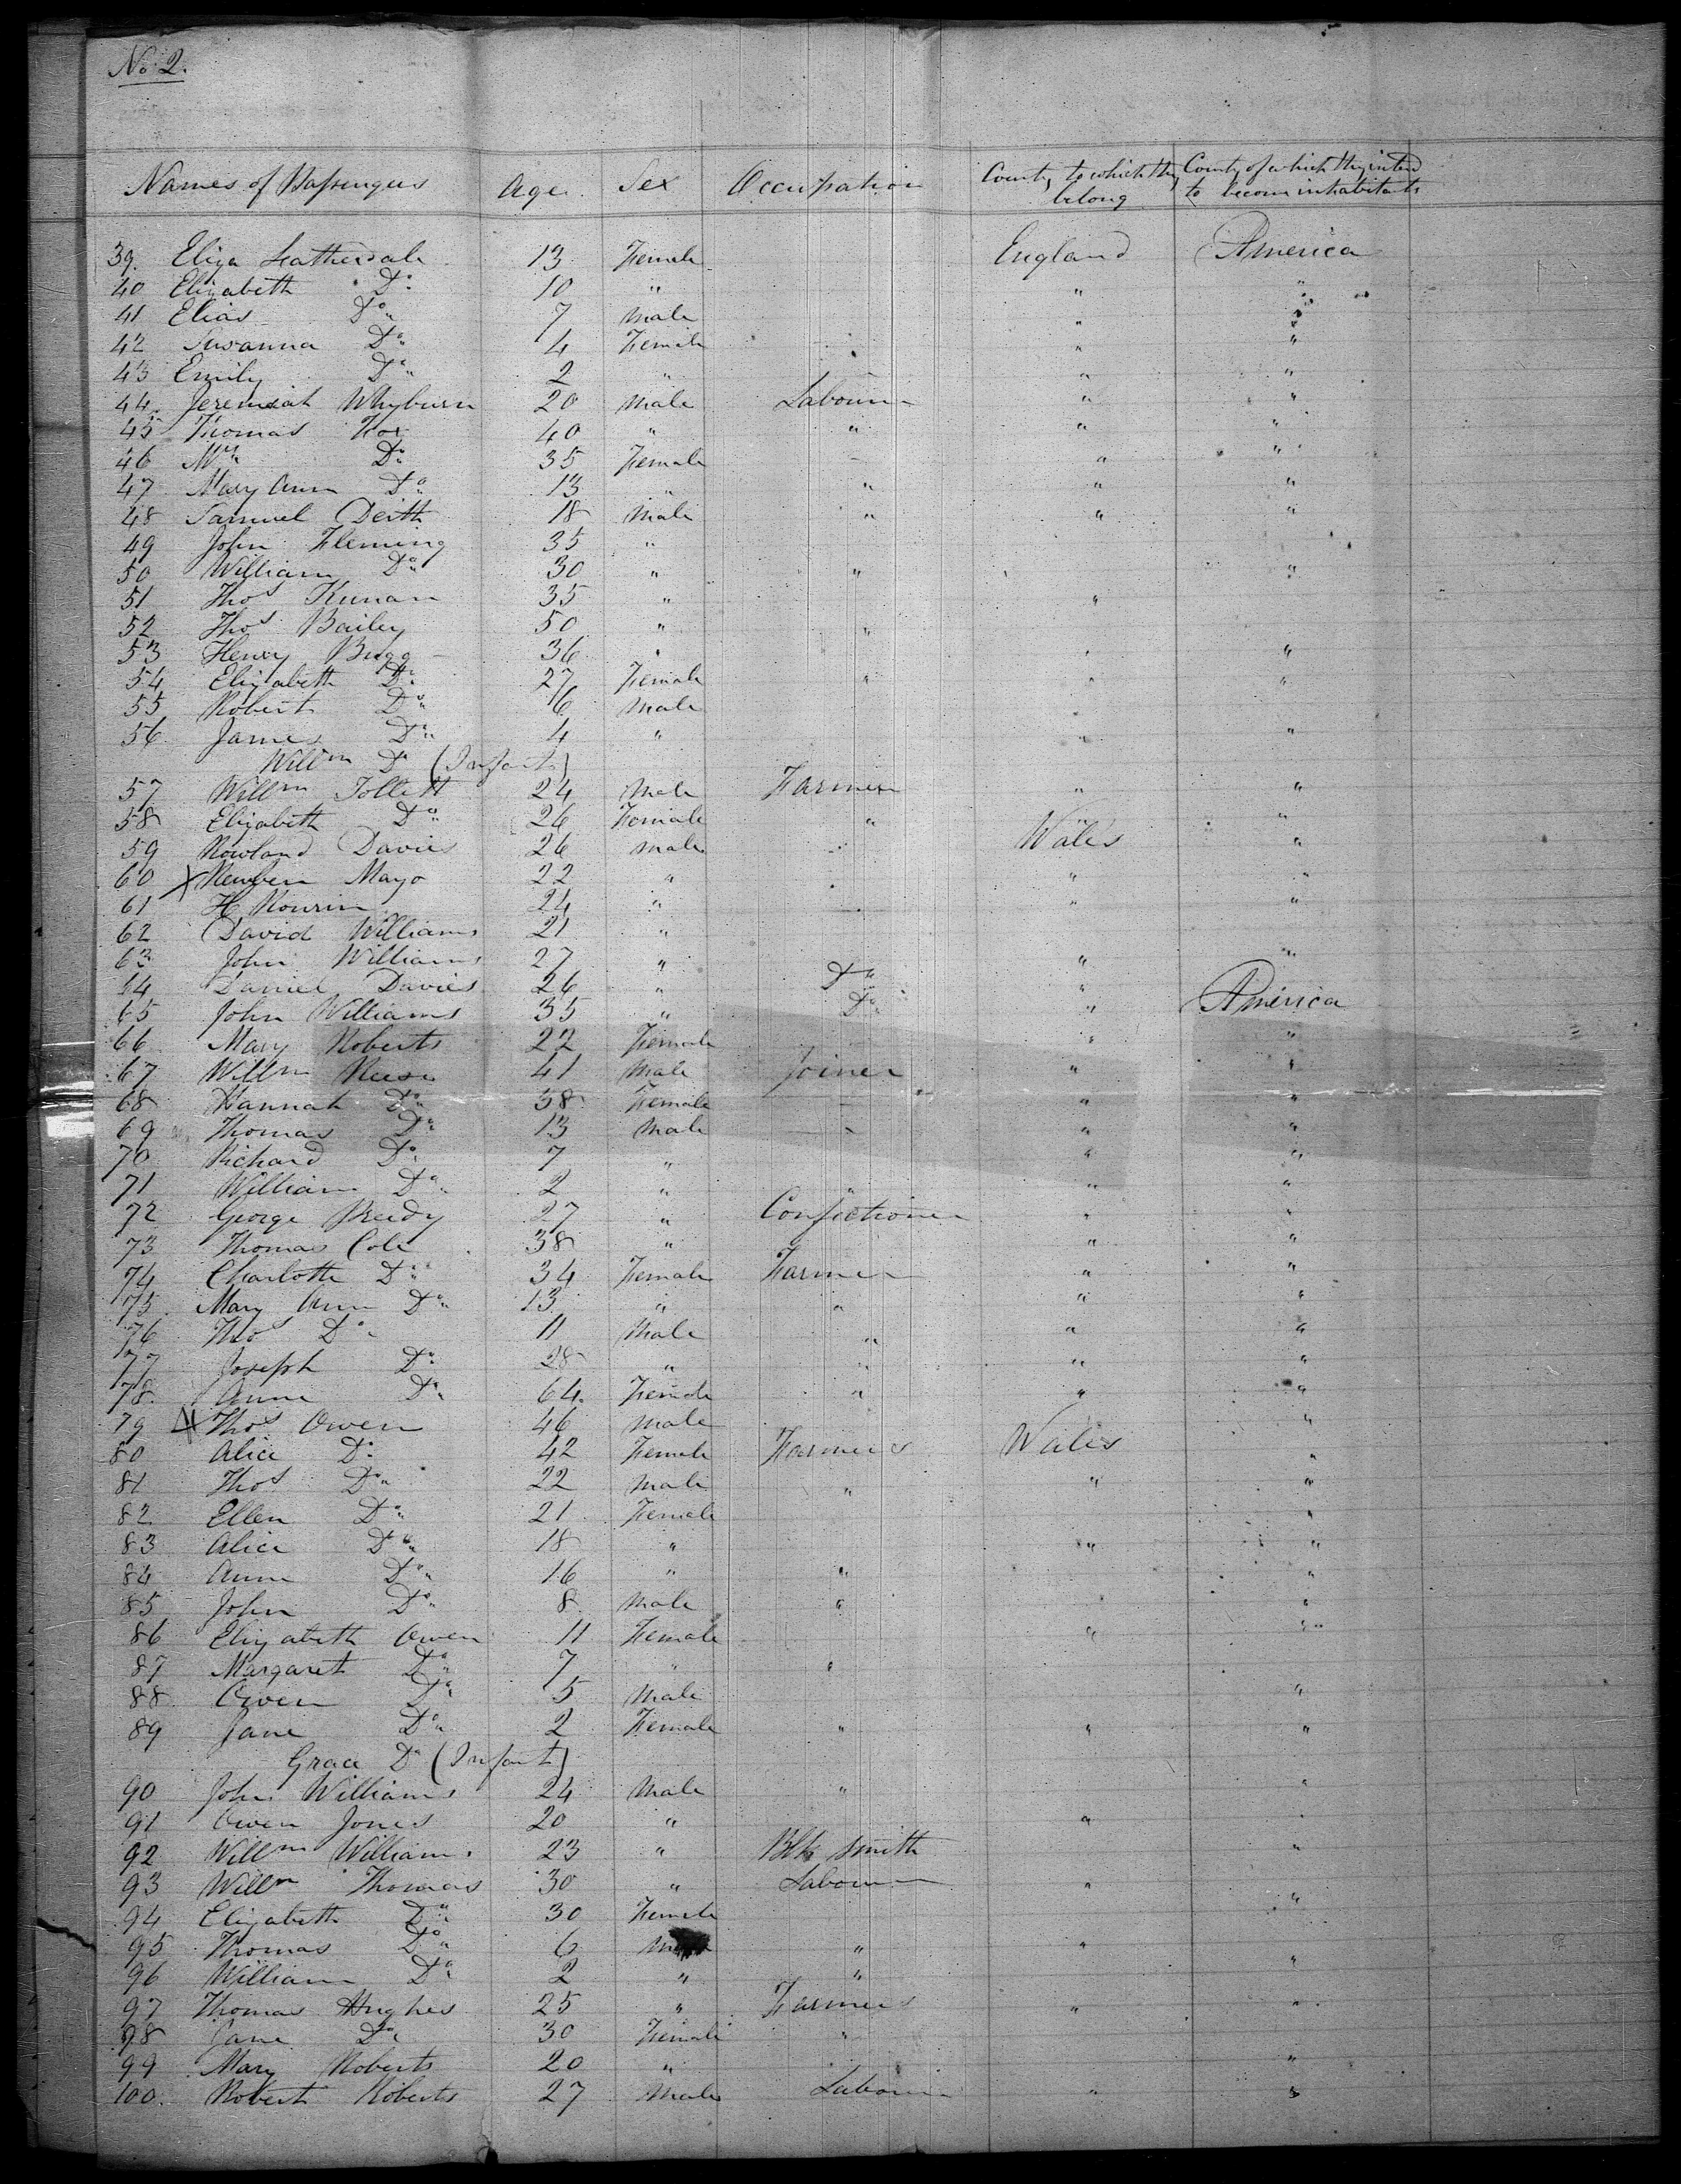 No 2.
Names of Passengers Age Sex Occupation County to which they belong County of which they intend to become inhabitants
39. Eliza Leatherdale 13 Female England America
40 Elizabeth Do 10 " " "
41 Elias Do 7 Male " "
42 Susanna Do 4 Female " "
43 Emily Do 2 " " "
44. Jeremiah Whyburn 20 Male Labourer " "
45 Thomas 40 " " " "
46 Mrs Do 35 Female " "
47 Mary Ann Do 13 " " " "
48 Samuel Deith 18 Male " " "
49 John Fleming 35 "
50 William Do 30 " " "
51 Thos 35 " "
52 Thos Bailey 50 " "
53 Henry Bugg 36 " " "
54 Elizabeth Do 27 Female " " "
55 Robert Do 6 Male
56 James Do 4 " " "
Willm Do (Infant)
57 Willm Tollett 24 Male Farmer " "
58 Elizabeth Do 26 Female " " "
59 Rowland Davies 26 Male Wales "
60 X Reuben Mayo 22 " " "
61 H 24 " " "
62 David Williams 21 "
63 John Williams 27 " " "
64 Daniel Davies 26 " Do "
65 John Williams 35 " Do " America
66 Mary Roberts 22 Female " "
67 Willm Reese 41 Male Joiner " "
68 Hannah Do 38 Female " "
69 Thomas Do 13 Male " "
70 Richard Do 7 " " "
71 William Do 2 " " "
72 George Preedy 27 " Confectioner " "
73 Thomas Cole 38 " " "
74 Charlotte Do 34 Female Farmer " "
75 Mary Ann Do 13 " " " "
76 Thos Do 11 Male " " "
77 Joseph Do 28 " " " "
78 Anne Do 64 Female " " "
79 X Thos Owen 46 Male "
80 Alice Do 42 Female Farmers Wales "
81 Thos Do 22 Male " " "
82 Ellen Do 21 Female "
83 Alice Do 18 " " "
84 Anne Do 16 " " "
85 John Do 8 Male " "
86 Elizabeth Owen 11 Female " "
87 Margaret Do 7 " "
88 Owen Do 5 Male "
89 Jane Do 2 Female " " "
Grace Do (Infant)
90 John Williams 24 Male " "
91 Owen Jones 20 " "
92 Willm Williams 23 " Blk Smith "
93 Willm Thomas 30 " Labourer " "
94 Elizabeth Do 30 Female
95 Thomas Do 6 Male " "
96 William Do 2 " " "
97 Thomas Hughes 25 " Farmers " "
98 Jane Do 30 Female "
99 Mary Roberts 20 " "
100. Robert Roberts 27 Male Labourer " "